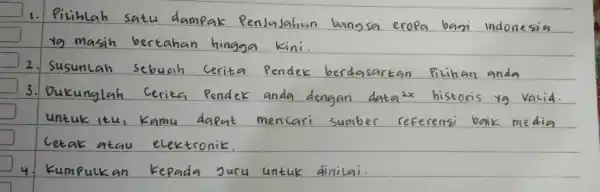 1. Pilihlah satu dampak Penjajahan bangsa eropa bagi indonesia
yg masih bertahan hingga kini.
2. Susunlah sebuah cerita Pendek berdasarkan Pilihan anda
3. Dukunglah cerita Pendek anda dengan data2x historis yg valid.
untuk itu, kamu dapat mencari sumber referensi baik media
cetak atau elektronik.
4. kumpulkan kepada guru untuk dinilai.